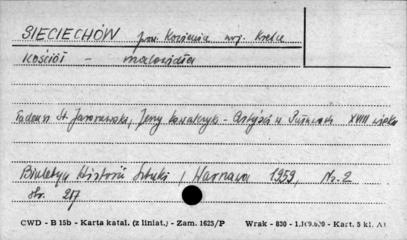 SIECIECHÓW pow. Kozienice woj. Kielce
Kościół - malowidła
Tadeusz St. Jaroszewski, Jerzy Kowalczyk - Artyści w Puławach XVIII wieku
Biuletyn Historii Sztuki, Warszawa 1959, Nr-2
str. 217
CWD - B 15b - Karta katal. (z liniat.) - Zam. 1625/P Wrak - 830 - Kart. 5 kl. A1